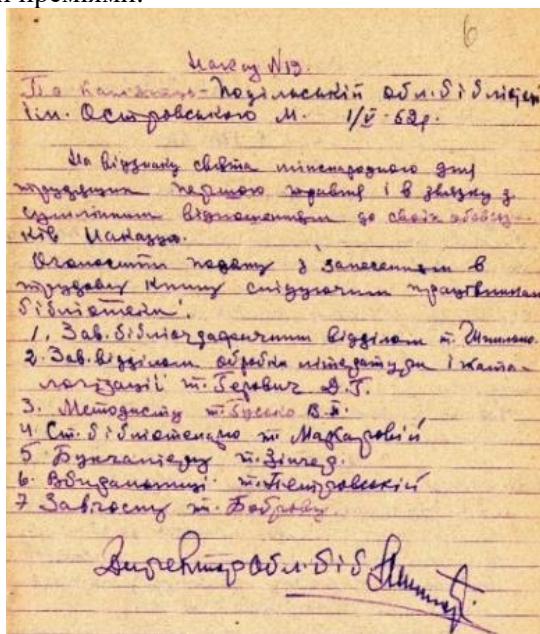 и премьями.
6
Наказ N19.
По Кам'янець-Подільській обл. бібліотеці
ім. Островського М. 1/V-52р.
На відзнаку свята міжнародного дня
трудящих першого травня і в звязку з
сумлінним відношенням до своїх обовяз-
ків Наказую.
Оголосити подяку з занесенням в
трудову книгу слідуючим працівникам
бібліотеки:
1. Зав. бібліографічним відділом т.
2. Зав. відділом обробки літератури і ката-
логізації т. Герович Д.Г.
3. Методисту т. Бусько В.
4. Ст. бібліотекарю т. Макаровій
5. Бухгалтеру т. Зінчер.
6. т. Петровській
7 Завгоспу т. Боброву
Директор обл. біб.